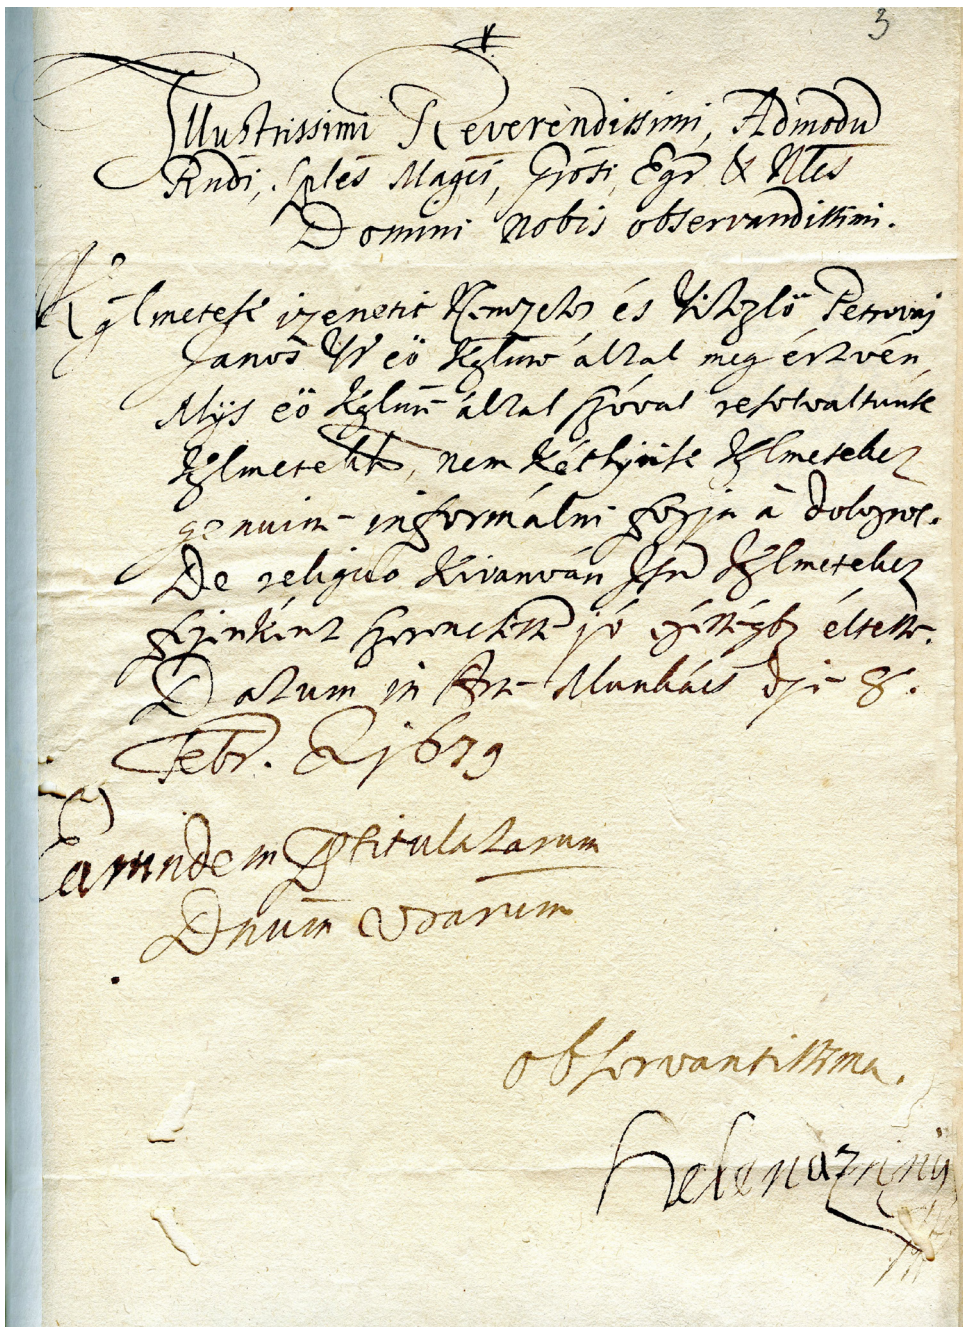 3
Illustrissimi Reverendissimi, Admodū
Rndi, Splēs Magci, Grosi, Egr & Nles
Domini nobis observandissimi.
Kglmetek izenetit Nemzetes és Vitézlö Petrovaj
János Ur eö Kglme által meg értvén
Mijs eö Kglme által szóval resolváltunk
Kglmetek, nem kétljük Kglmeteket
genuine informálni fogja à dologrol.
De reliquo kivánván Kglmeteket
fejenként jó éltesse.
Datum in Arce Munkács die 8.
Febr. A 1679
Earundem Ptitulatarum
Dnūm Vrarum
observantissima.
Helena Zrinÿ